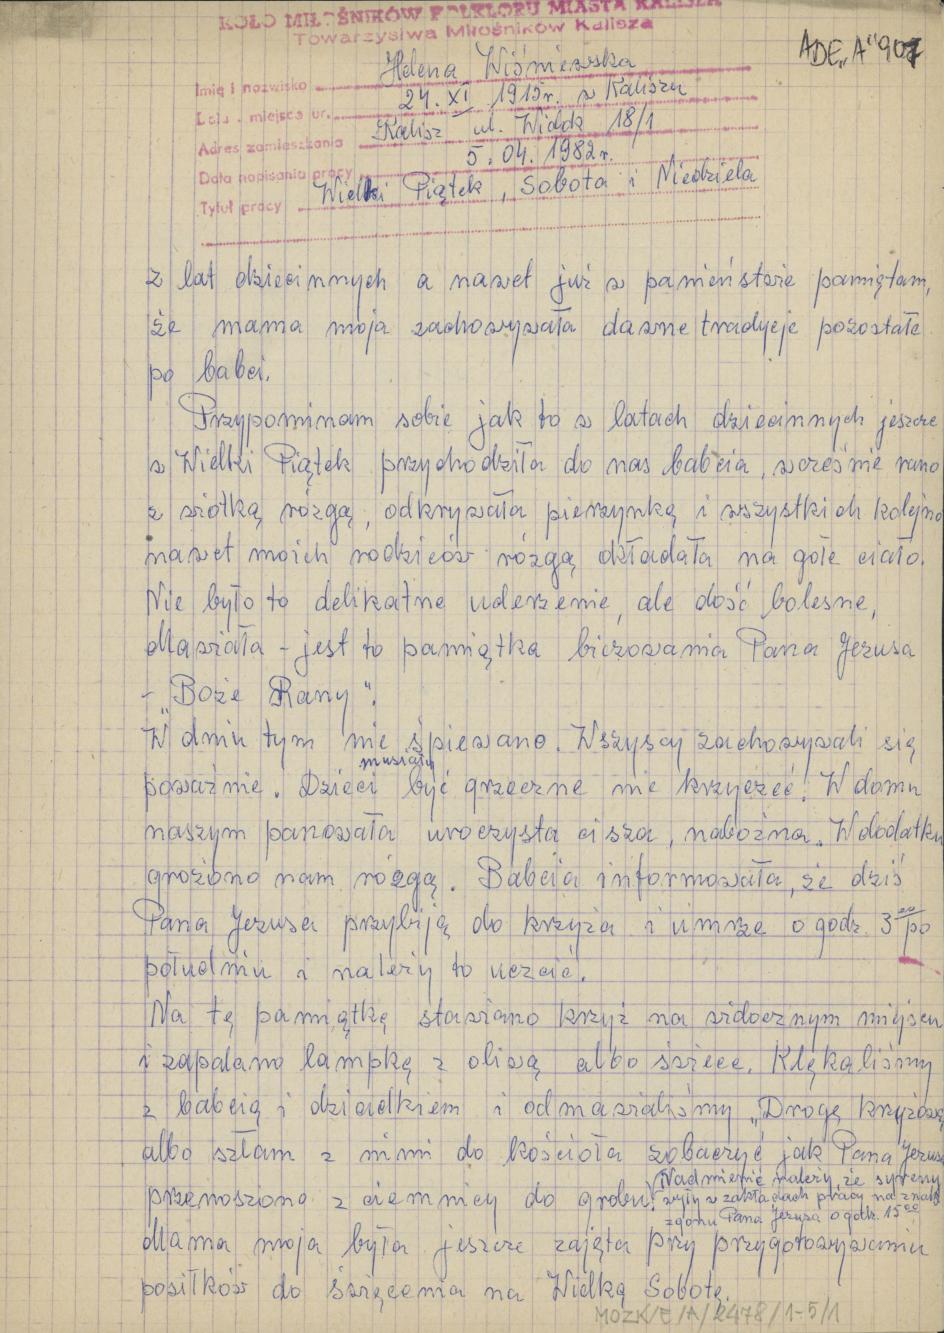 KOŁO MIŁOŚNIKÓW FOLKLORU MIASTA KALISZA
Towarzystwa Miłośników Kalisza
ADE„A"907
Imię i nazwisko Helena Wiśniewska
Data i miejsce ur. 24.XI 1915r. w Kaliszu
Adres zamieszkania Kalisz ul. Widok 18/1
Data napisania pracy 5.04.1982r.
Tytuł pracy Wielki Piątek, Sobota i Niedziela
z lat dziecinnych a nawet już w panieństwie pamiętam,
że mama moja zachowywała dawne tradycje pozostałe
po babci.
Przypominam sobie jak to w latach dziecinnych jeszcze
w Wielki Piątek przychodziła do nas babcia, wcześnie rano
z wiotką rózgą, odkrywała pierzynkę i wszystkich kolejno
nawet moich rodziców rózgą okładała na gołe ciało.
Nie było to delikatne uderzenie, ale dość bolesne,
Mawiała - jest to pamiątka biczowania Pana Jezusa
- „Boże Rany".
W dniu tym nie śpiewano. Wszyscy zachowywali się
poważnie. Dzieci musiały być grzeczne nie krzyczeć! W domu
naszym panowała uroczysta cisza, nabożna. W dodatku
grożono nam rózgą. Babcia informowała, że dziś
Pana Jezusa przybiją do krzyża i umrze o godz. 3⁰⁰ po
południu i należy to uczcić.
Na tę pamiątkę stawiano krzyż na widocznym miejscu
i zapalano lampkę z oliwą albo świece. Klękaliśmy
z babcią i dziadkiem i odmawialiśmy „Drogę krzyżową
albo szłam z nimi do kościoła zobaczyć jak Pana Jezusa
przenoszono z ciemnicy do grobu. (Nadmienić należy, że syreny
wyły w zakładach pracy na znak
zgonu Pana Jezusa o godz. 15⁰⁰
Mama moja była jeszcze zajęta przy przygotowywaniu
posiłków do święcenia na Wielką Sobotę.
MOZK/E/A/2478/1-5/1